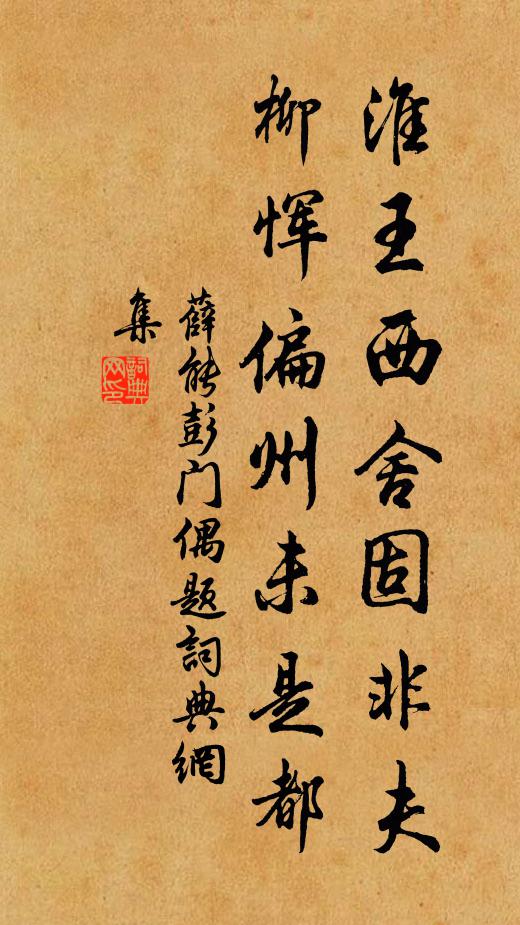 淮王西舍固非夫
柳恽偏州未是都
薛能彭门偶题詞典網
集
詞典网印